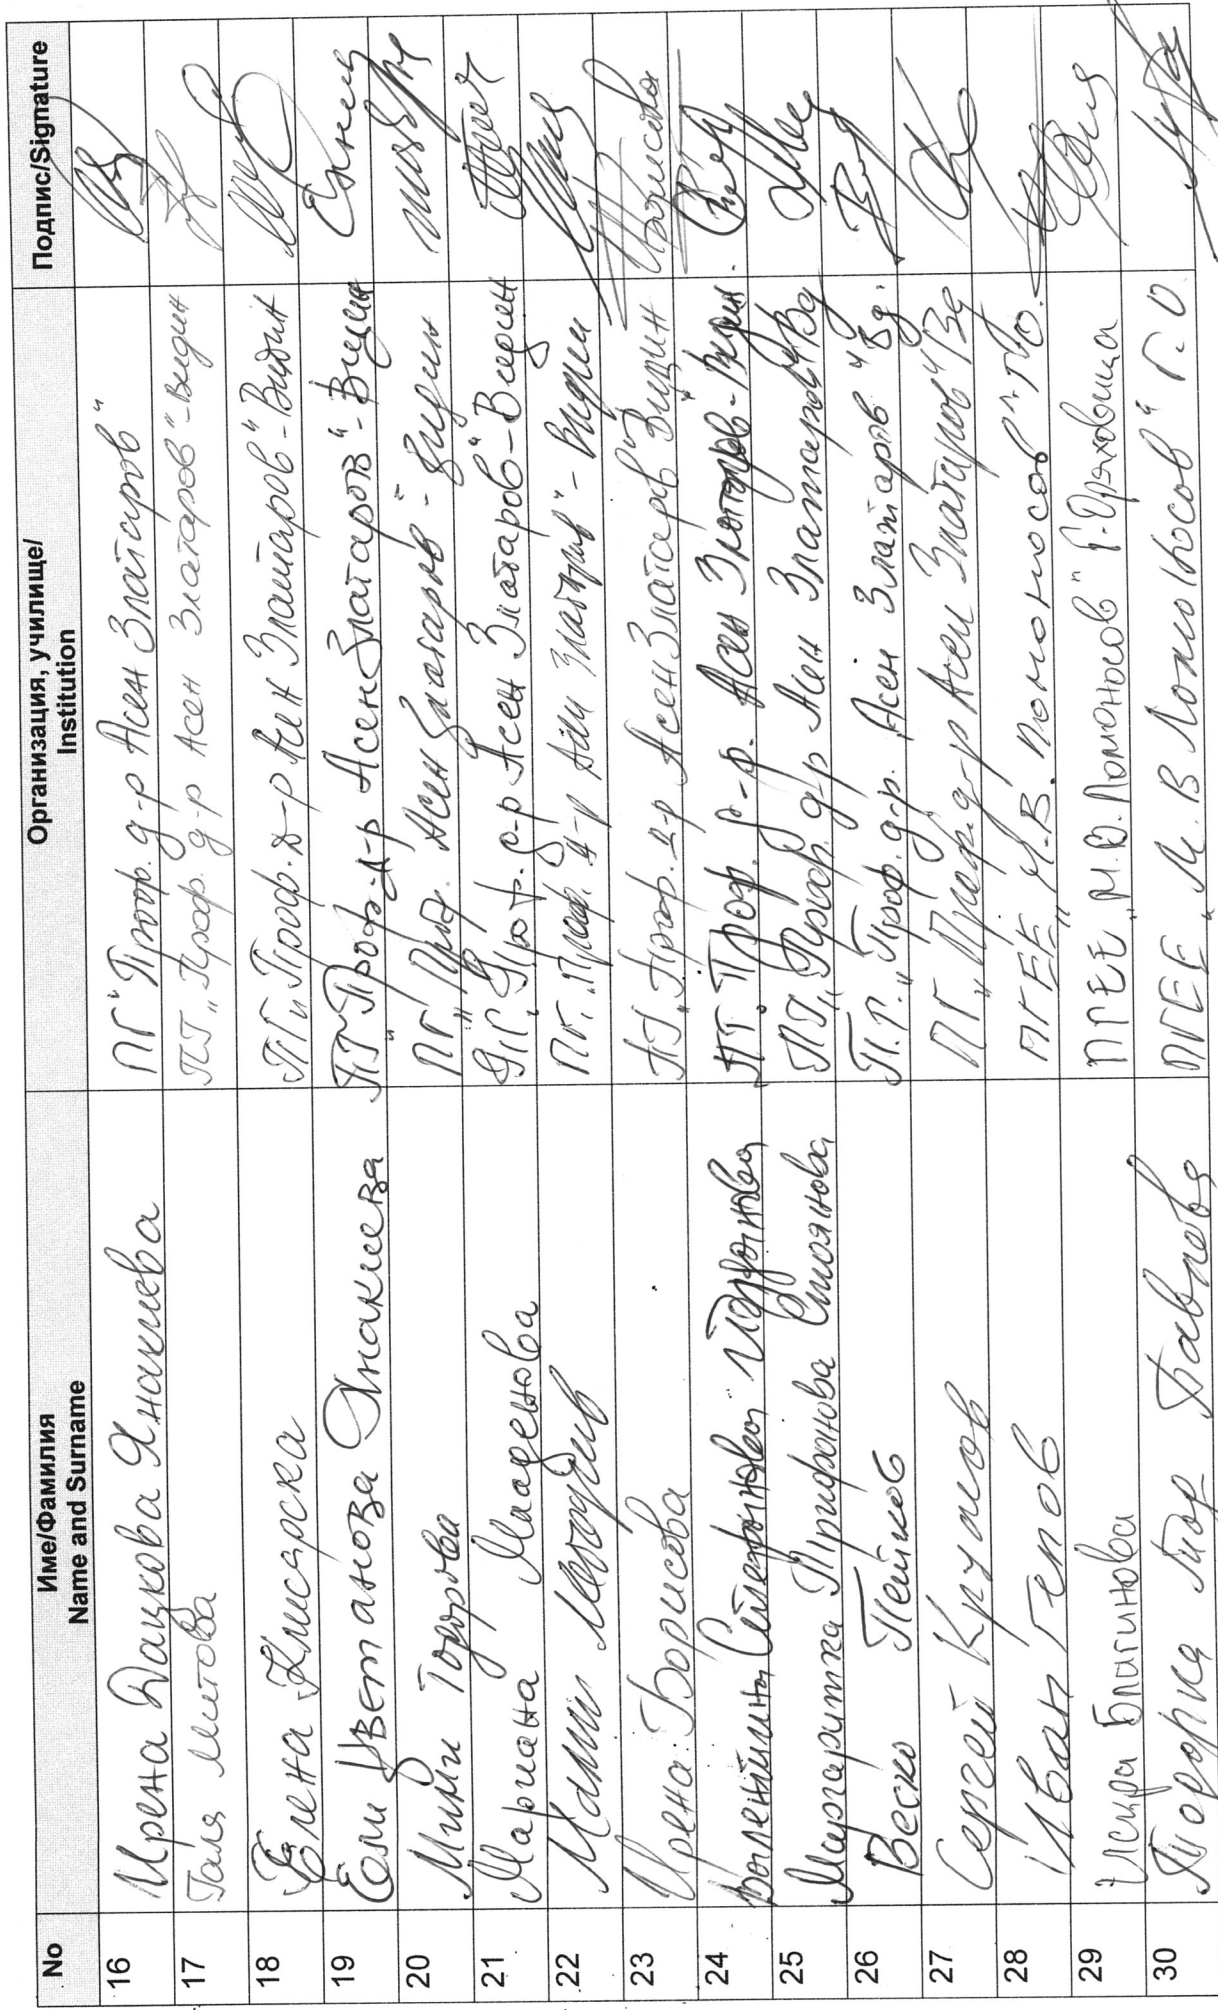 No Име/Фамилия Организация, училище/ Подпис/Signature
Name and Surname Institution
16 Ирена Дацкова Янакиева ПГ "Проф. д-р Асен Златаров"
17 Галя Митова ПГ „Проф. д-р Асен Златаров"-Видин
18 Елена Клисарска ПГ„Проф. д-р Асен Златаров"-Видин
19 Ели Цветанова Янакиева ПГ„Проф. д-р Асен Златаров"-Видин
20 Мими Тодорова ПГ„Проф. Асен Златаров"-Видин
21 Мариана Младенова ПГ„Проф. д-р Асен Златаров"-Видин
22 ПГ„Проф. д-р Асен Златаров"-Видин
23 Ирена Борисова ПГ„Проф. д-р Асен Златаров" Видин Борисова
24 Валентина ПГ„Проф. д-р. Асен Златаров-Видин.
25 Маргаритка Трифонова Стоянова ПГ„Проф. д-р Асен Златаров" Вд
26 Веско Петков П.Г. „Проф. д-р. Асен Златаров" Вд.
27 Сергей Крумов ПГ „Проф. д-р Асен Златаров" Вд
28 Иван Гепов ПГЕЕ „М.В. Ломоносов" Г.О.
29 Благинова ПГЕЕ „М.В. Ломоносов" Г. Оряховица
30 Тодорка Павлова ПГЕЕ „М.В Ломоносов" Г.О